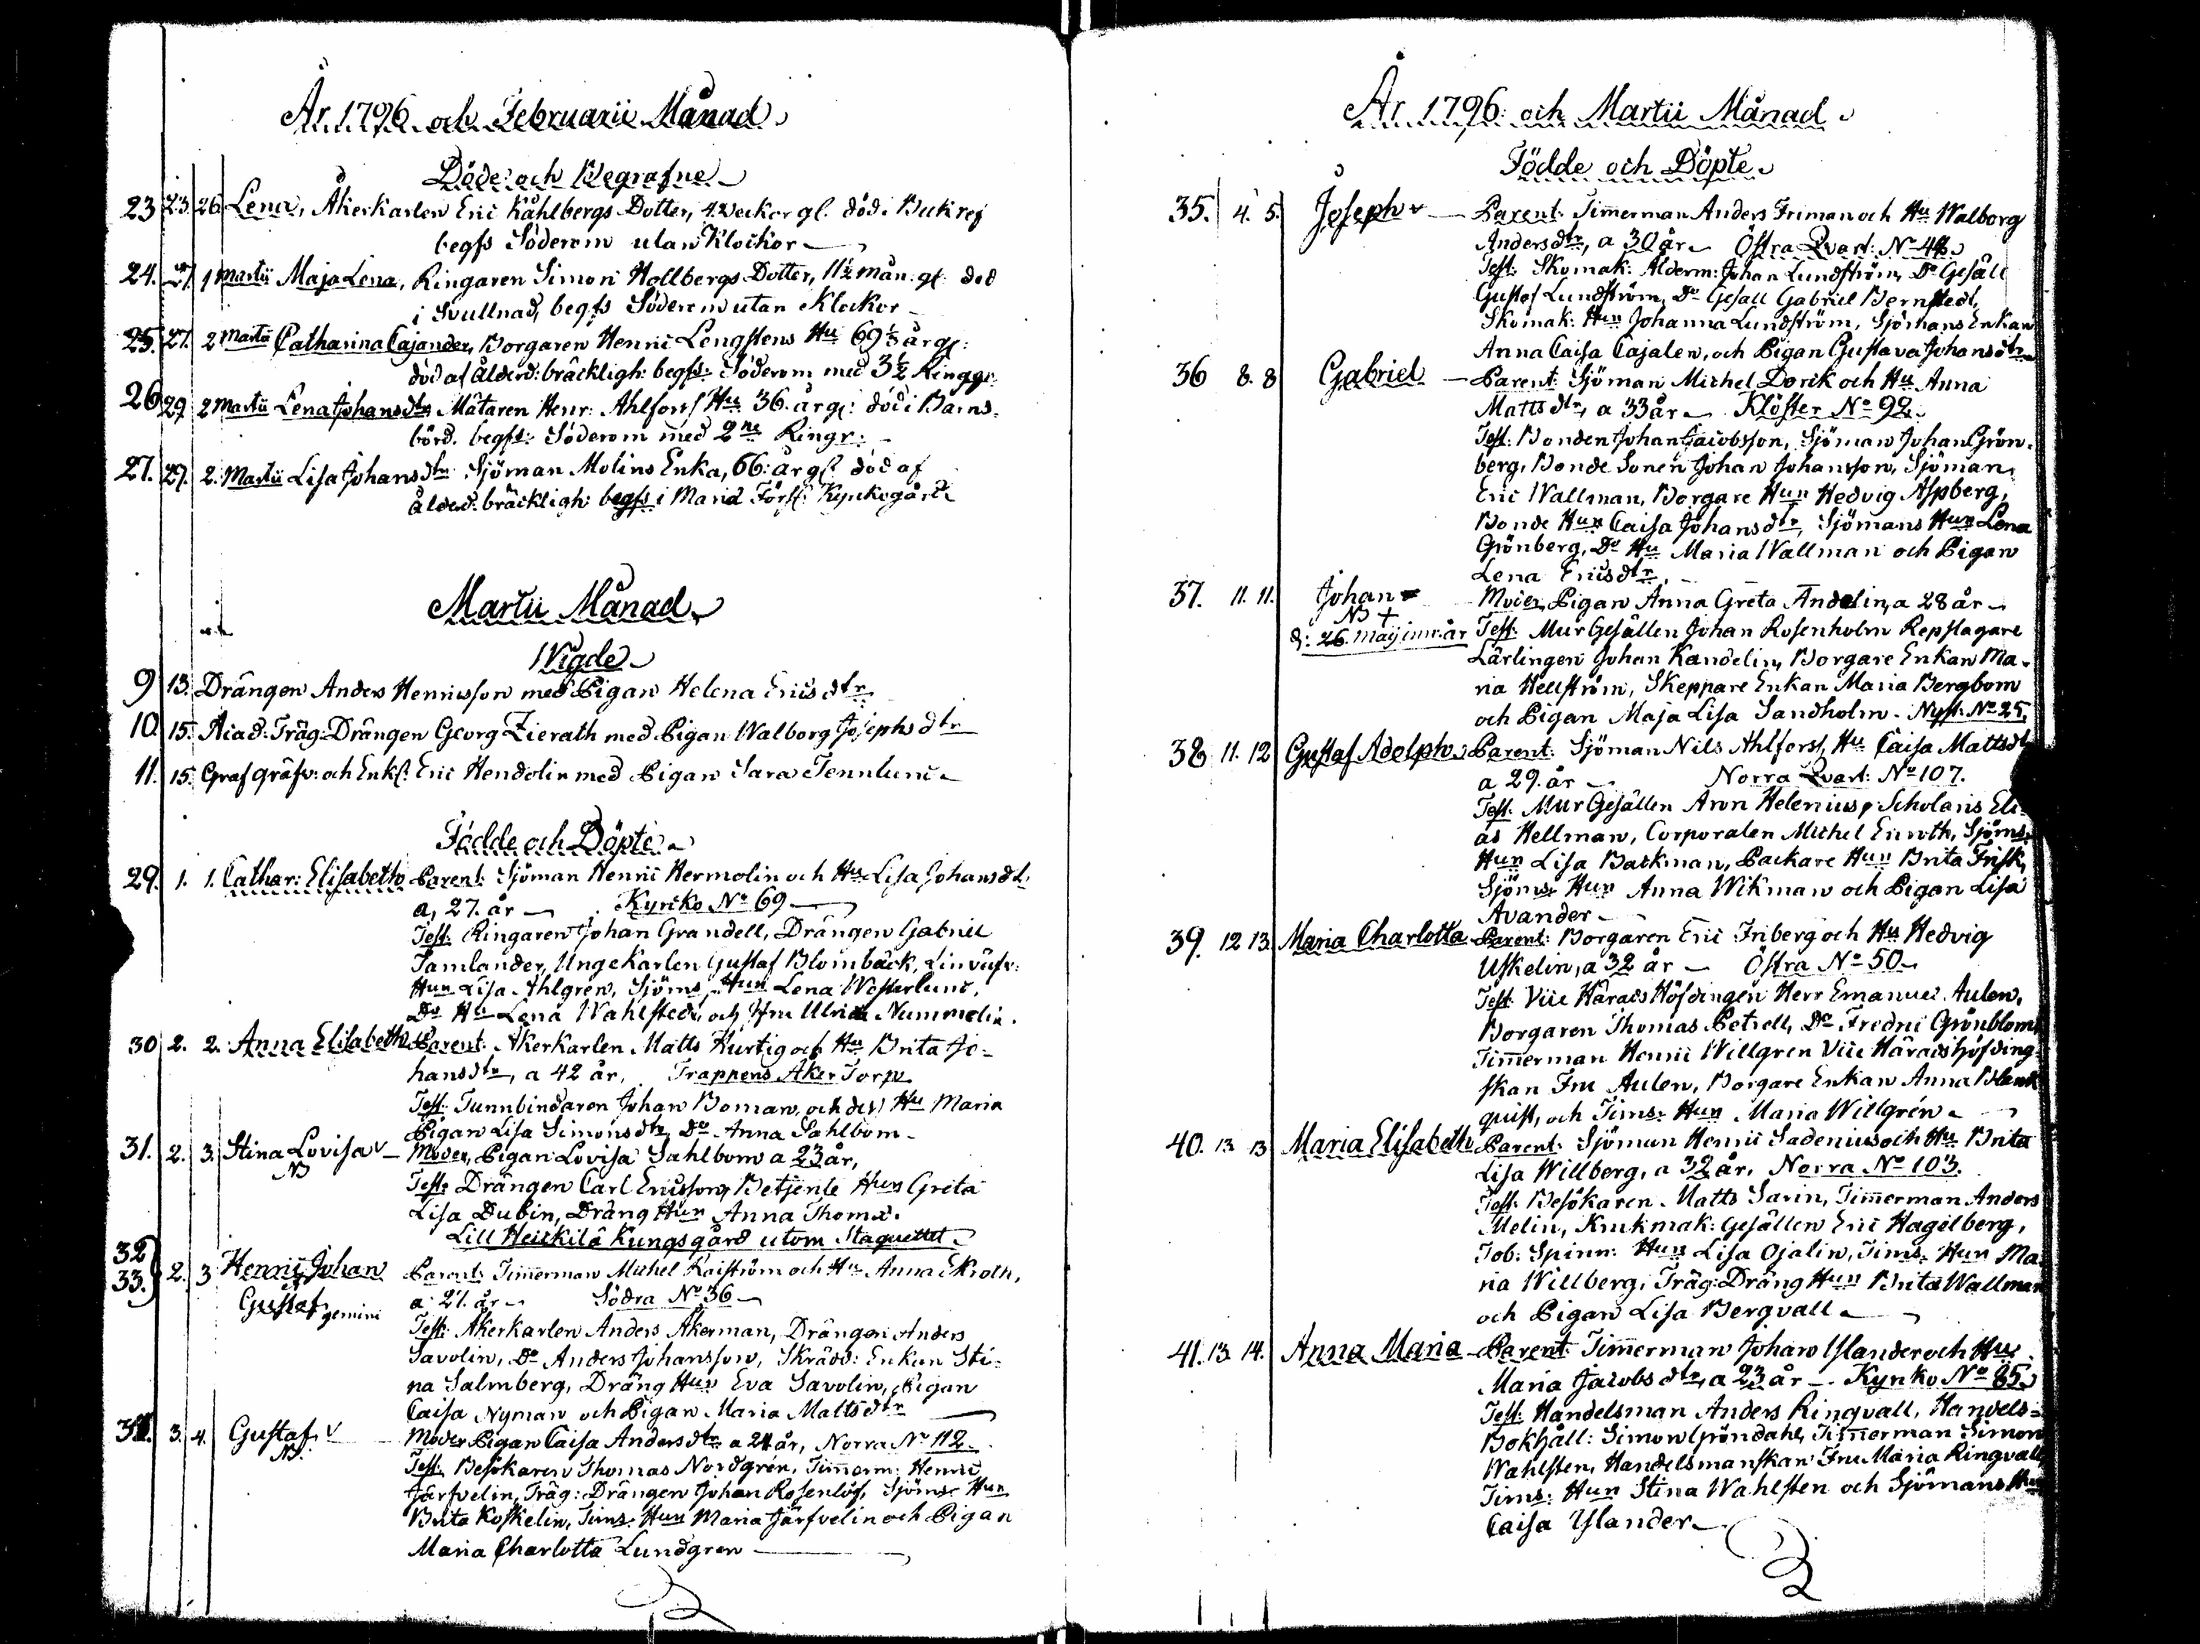 År 1796 och Februarii Månad
Döde och Begrafne
23 23. 26 Lena, Åkerkarlen Eric Kåhlbergs Dotter, 4. Veckor gl. död i Bukref
begfs Söderom utan Klockor
24. 27. 1 Martii Maja Lena, Ringaren Simon Hollbergs Dotter, 11½ mån: gl. död
i Svullnad, begfs Söderom utan Klockor
25. 27. 2 Martii Catharina Cajander, Borgaren Henric Lengstens Hu 69⅓ år gl:
död af ålderd: bräckligh: begfs: Söderom med 3½ Ringgr.
26 29 2 Martii Lena Johansdtr Mätaren Henr: Ahlfors Hu 36. år gl: död i Barns-
börd. begfs: Söderom med 2ne Ringr:
27. 29. 2. Martii Lisa Johansdtr Sjöman Molins Enka, 66: år gl död af
ålderd: bräckligh: begfs i Mariæ Förs: Kyrkogård
Martii Månad
Wigde
9 13. Drängen Anders Henricsson med Pigan Helena Ericsdtr
10. 15. Acad: Träg: Drängen Georg Zierath med Pigan Walborg Josephsdtr
11. 15. Graf gräfv: och Enkl: Eric Hendolin med Pigan Sara Tennlund
Födde och Döpte
29. 1. 1. Cathar: Elisabeth Parent: Sjöman Henric Hermolin och Hu Lisa Johansdtr
a, 27. år Kyrko No 69
Test: Ringaren Johan Grandell, Drängen Gabriel
Tamlander, Ungekarlen Gustaf Blombäck, Linväfv:
Hun Lisa Ahlgren, Sjöms Hun Lena Westerlund,
Do Hu Lena Wahlstedt, och Jfru Ulrica Nummelin.
30 2. 2. Anna Elisabeth Parent: Åkerkarlen Matts Hurtig och Hu Brita Jo-
hansdtr, a 42 år, Trappens Åker Torp
Test: Tunnbindaren Johan Boman, och des Hu Maria
Pigan Lisa Simonsdtr, Do Anna Sahlbom
31. 2. 3. Stina Lovisa v Moder, Pigan Lovisa Sahlbom a 23 år,
NB
Test: Drängen Carl Ericsson, Betjente Hun Greta
Lisa Dubin, Dräng Hun Anna Thomæ.
Lill Heickilä Kungsgård utom Staquettet
32
33. 2. 3 Henric Johan Parent: Timmerman Michel Kaiström och Hu Anna Ekroth,
Gustaf gemini a 27. år Södra No 36
Test: Åkerkarlen Anders Åkerman, Drängen Anders
Savolin, Do Anders Johansson, Skrädd: Enkan Sti-
na Salmberg, Dräng Hun Eva Savolin, Pigan
Caisa Nyman och Pigan Maria Mattsdtr
34. 3. 4. Gustaf v Moder Pigan Caisa Andersdtr a 24 år, Norra No 112
NB.
Test: Besökaren Thomas Nordgrén, Timmerm: Henric
Järfvelin, Träg: Drängen Johan Rosenlöf, Sjöms Hun
Brita Koskelin, Tims. Hun Maria Järfvelin och Pigan
Maria Charlotta Lundgren
År 1796: och Martii Månad
Födde och Döpte
35. 4. 5. Joseph v Parent: Timmerman Anders Friman och Hu Walborg
Andersdtr, a 30 år Östra Qvart: No 48
Test: Skomak: Ålderm: Johan Lundström, Do Gesäll
Gustaf Lundström, Do Gesäll Gabriel Bernstedt,
Skomak: Hun Johanna Lundström, Sjömans Enkan
Anna Caisa Cajalen, och Pigan Gustava Johansdtr
36 8. 8 Gabriel Parent: Sjöman Michel Dorik och Hu Anna
Mattsdtr, a 33 år Klöster No 92
Test: Bonden Johan Jacobsson, Sjöman Johan Grön-
berg, Bonde Sonen Johan Johansson, Sjöman
Eric Wallman, Borgare Hun Hedvig Aspberg,
Bonde Hun Caisa Johansdtr, Sjömans Hun Lena
Grönberg, Do Hu Maria Wallman och Pigan
Lena Ericsdtr
37. 11. 11. Johan Moder, Pigan Anna Greta Andelin, a 28 år
NB +
d: 26 Maij innev: år Test: Mur Gesällen Johan Rosenholm Repslagare
Lärlingen Johan Kandelin, Borgare Enkan Ma-
ria Hellström, Skeppare Enkan Maria Bergbom
och Pigan Maja Lisa Sandholm. Nyst: No 25.
38 11. 12 Gustaf Adolph Parent: Sjöman Nils Ahlfors, Hu Caisa Mattsdtr
a 29. år Norra Qvart: No 107.
Test: Mur Gesällen Aron Helenius, Scholaris Eli-
as Hellman, Corporalen Michel Enroth, Sjöms.
Hun Lisa Backman, Packare Hun Brita Frisk,
Sjöms Hun Anna Wikman och Pigan Lisa
Avander
39. 12 13. Maria Charlotta Parent: Borgaren Eric Friberg och Hu Hedvig
Uskelin, a 32 år Östra No 50
Test: Vice Härads Höfdingen Herr Emanuel Aulen,
Borgaren Thomas Petrell, Do Fredric Grönblom
Timmerman Henric Willgren Vice Häradshöfding-
skan Fru Aulen, Borgare Enkan Anna Blank
quist, och Tims: Hun Maria Willgrén
40. 13 13 Maria Elisabeth Parent: Sjöman Henric Sadenius och Hu Brita
Lisa Willberg, a 32 år. Norra No 103.
Test: Besökaren Matts Sarin, Timmerman Anders
Melin, Krukmak: Gesällen Eric Hagelberg,
Tob: Spinn: Hun Lisa Ojalin, Tims: Hun Ma-
ria Willberg, Träg: Dräng Hun Brita Wallman
och Pigan Lisa Bergvall
41. 13 14. Anna Maria Parent: Timmerman Johan Ylander och Hu
Maria Jacobsdtr, a 23 år Kyrko No 85
Test: Handelsman Anders Ringvall, Handels-
Bokhåll: Simon Gröndahl, Timmerman Simon
Wahlsten, Handelsmanskan Fru Maria Ringvall
Tims: Hun Stina Wahlsten och Sjömans Hun
Caisa Ylander